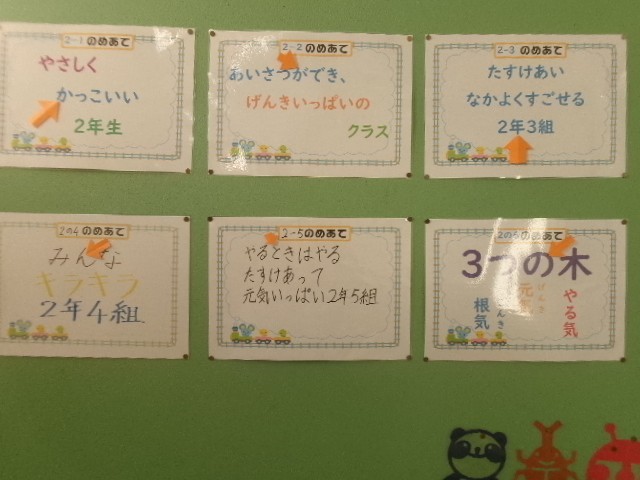 2-1 のめあて
やさしく
かっこいい
2年生
2-2 のめあて
あいさつができ、
げんきいっぱいの
クラス
2-3 のめあて
たすけあい
なかよくすごせる
2年3組
2の4 のめあて
みんな
キラキラ
2年4組
2-5のめあて
やるときはやる
たすけあって
元気いっぱい2年5組
2の6のめあて
3つの木
やる気
元気
げんき
根気
こんき